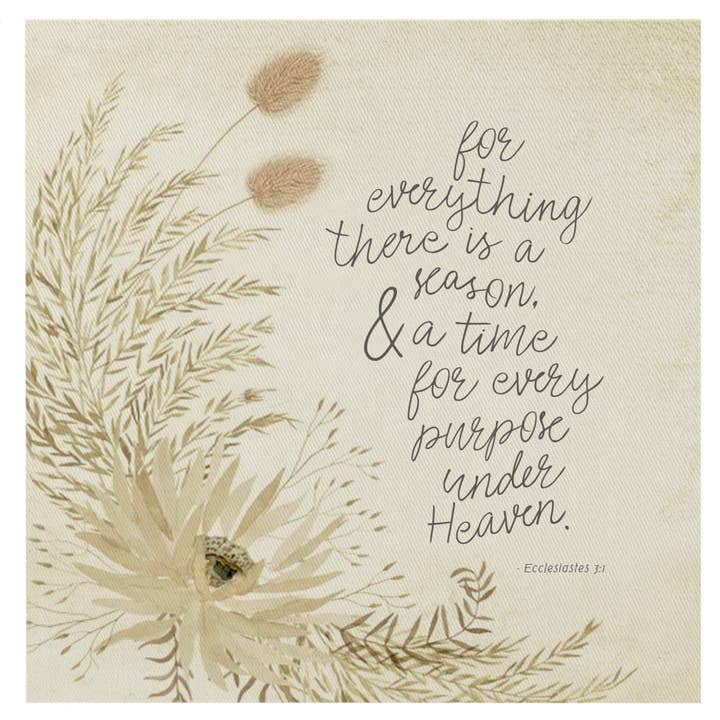 for
everything
there is a
season,
& a time
for every
purpose
under
Heaven.
- Ecclesiastes 3:1